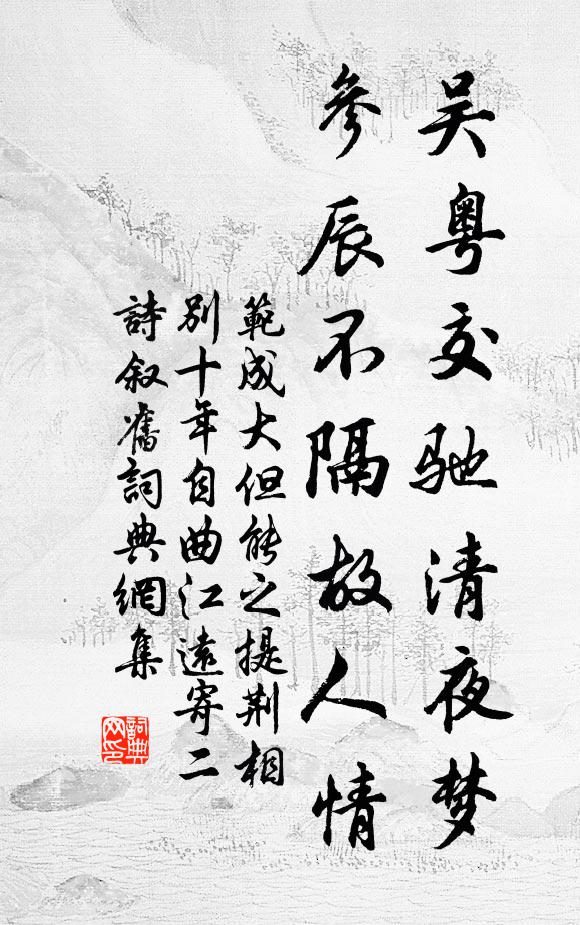 吴粤交驰清夜梦
參辰不隔故人情
範成大但能之提荆相
別十年自曲江遠寄二
詩叙舊詞典網集
詞典
网印